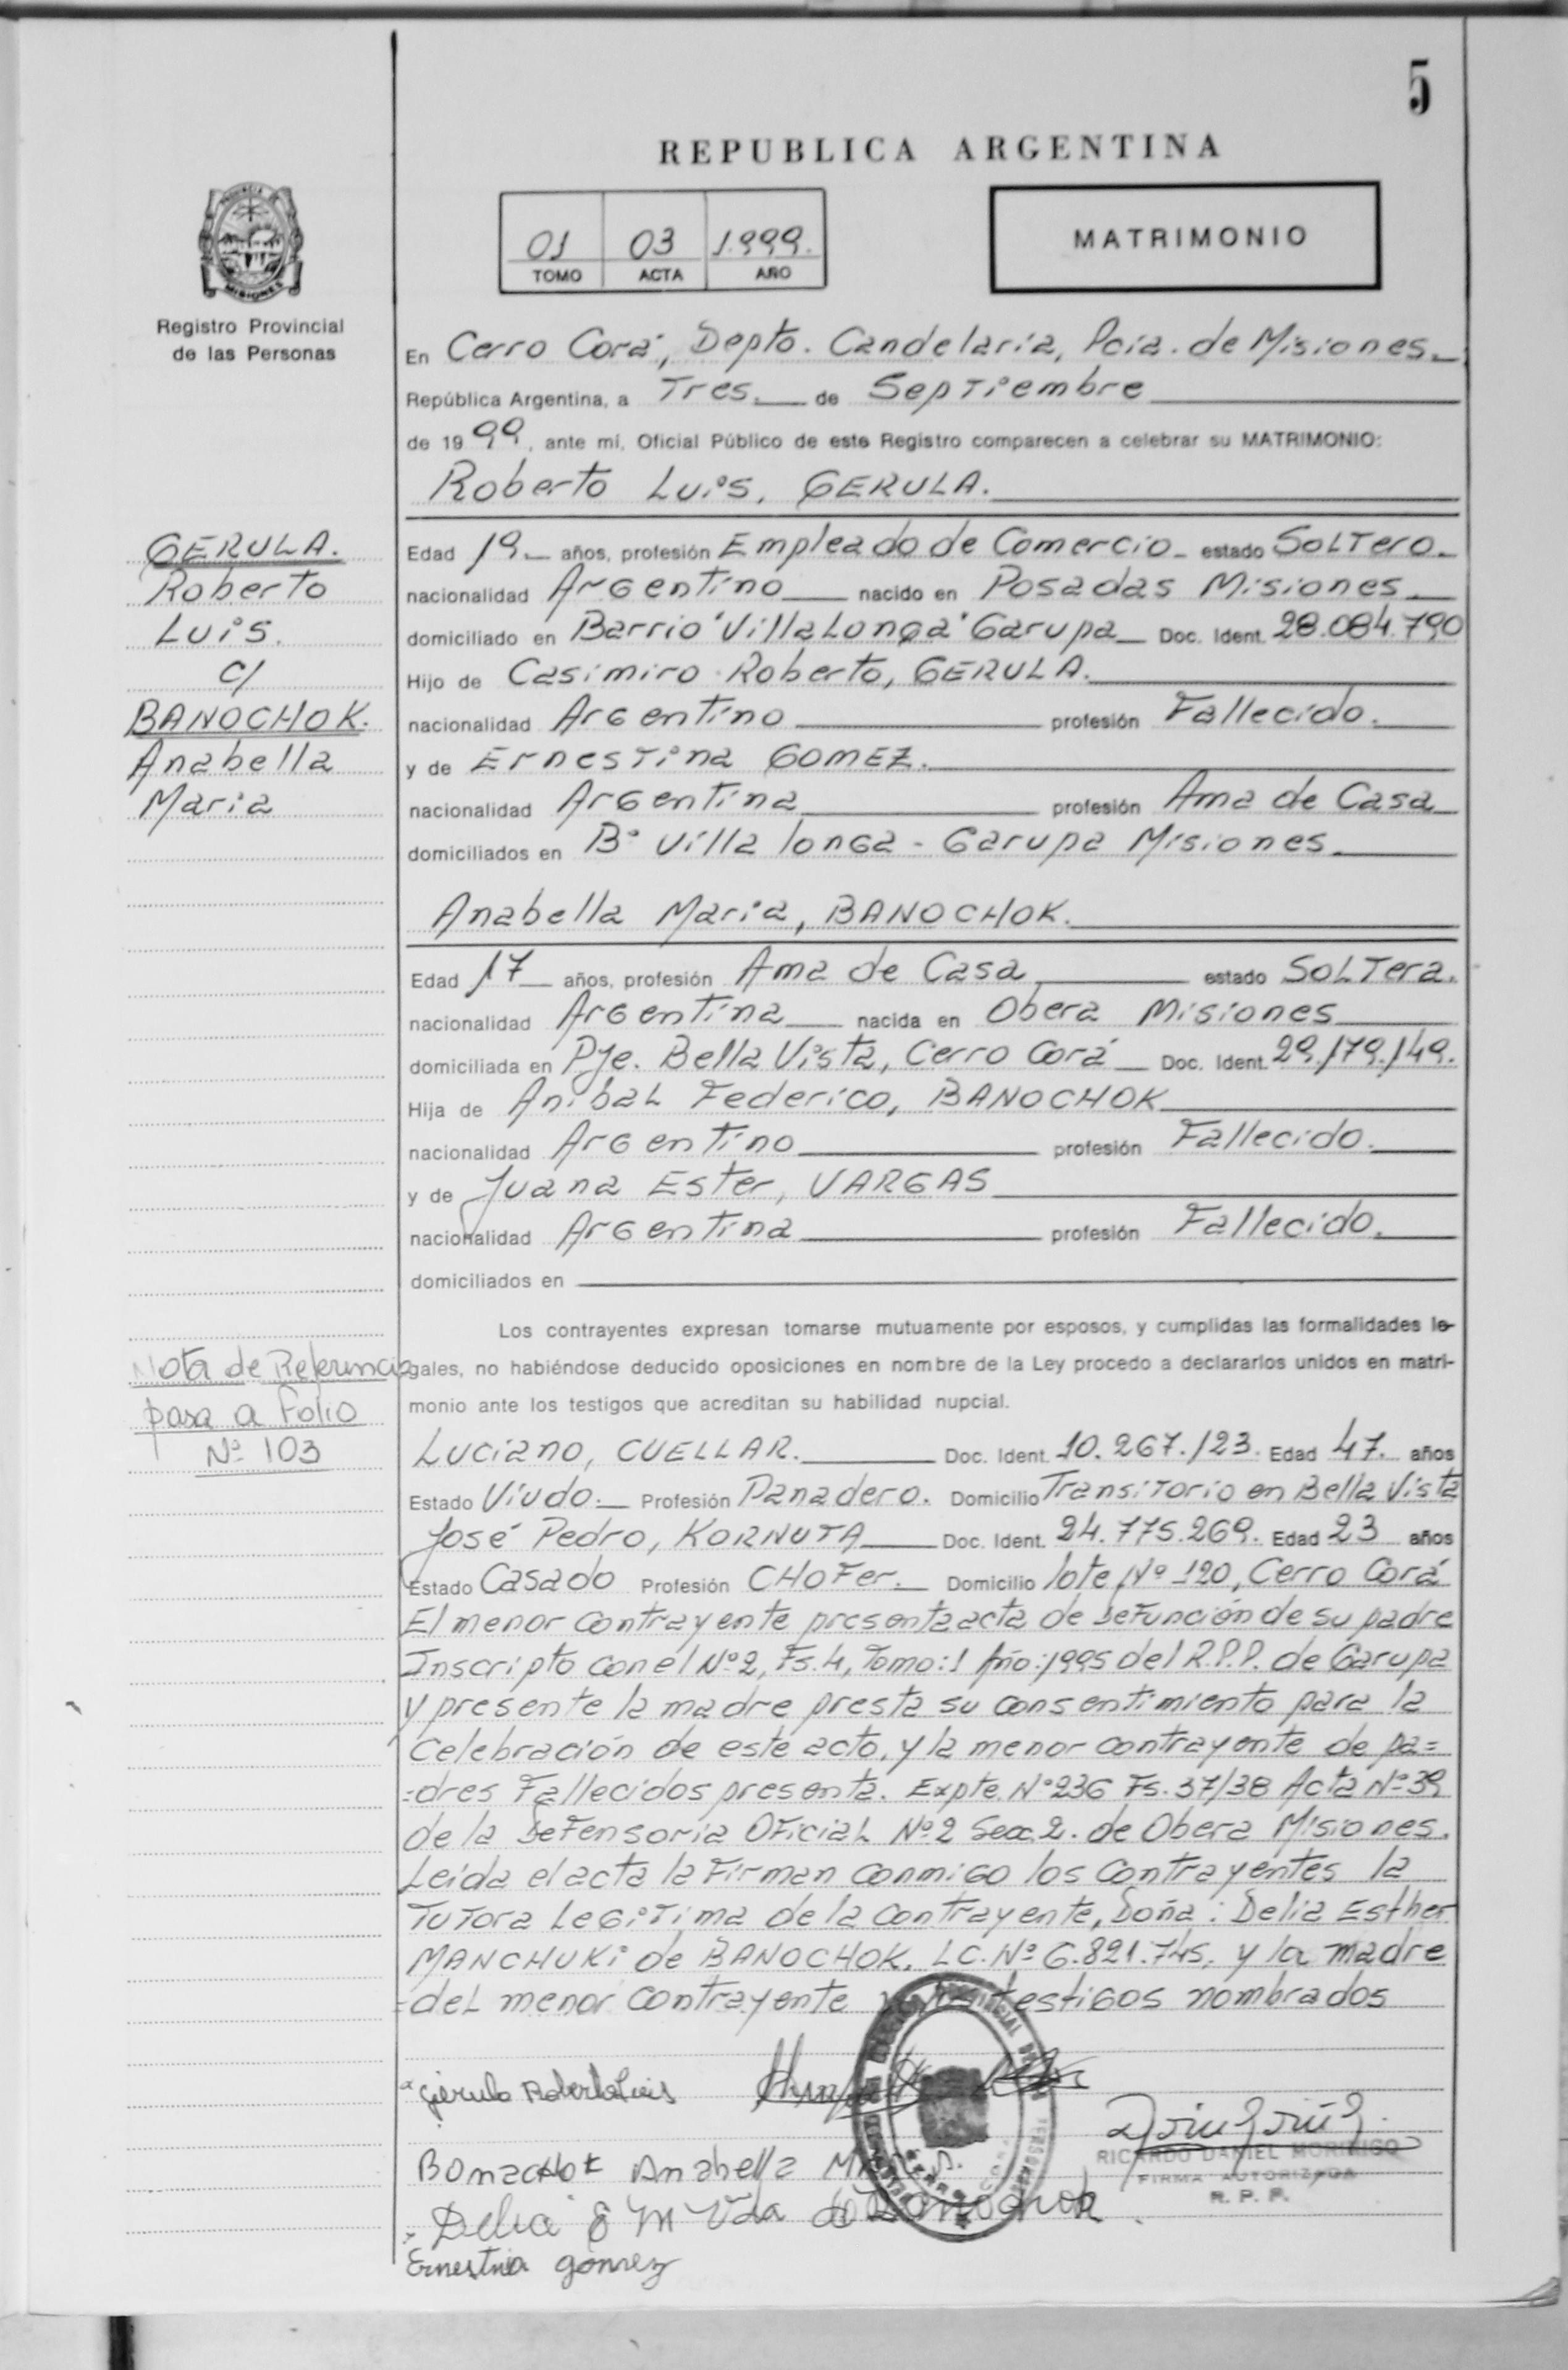 5
REPUBLICA ARGENTINA
01 03 1.999.
TOMO ACTA AÑO
MATRIMONIO
PROVINCIA
MISIONES
Registro Provincial
de las Personas
En Cerro Corá, Depto. Candelaria, Pcia. de Misiones
República Argentina, a Tres. de Septiembre
de 1999, ante mí, Oficial Público de este Registro comparecen a celebrar su MATRIMONIO:
Roberto Luis, GERULA.
GERULA.
Roberto
Luis.
c/
BANOCHOK.
Anabella
Maria
Edad 19 años, profesión Empleado de Comercio estado Soltero.
nacionalidad Argentino nacido en Posadas Misiones
domiciliado en Barrio "Villa Longa" Garupa Doc. Ident. 28.084.790
Hijo de Casimiro Roberto, GERULA.
nacionalidad Argentino profesión Fallecido.
y de Ernestina GOMEZ.
nacionalidad Argentina profesión Ama de Casa
domiciliados en Bº Villa longa - Garupa Misiones
Anabella Maria, BANOCHOK.
Edad 17 años, profesión Ama de Casa estado Soltera.
nacionalidad Argentina nacida en Obera Misiones
domiciliada en Pje. Bella Vista, Cerro Corá Doc. Ident. 29.179.149.
Hija de Anibal Federico, BANOCHOK
nacionalidad Argentino profesión Fallecido.
y de Juana Ester, VARGAS
nacionalidad Argentina profesión Fallecido.
domiciliados en
Los contrayentes expresan tomarse mutuamente por esposos, y cumplidas las formalidades le-
gales, no habiéndose deducido oposiciones en nombre de la Ley procedo a declararlos unidos en matri-
monio ante los testigos que acreditan su habilidad nupcial.
Nota de Referencia
pasa a Folio
Nº 103
Luciano, CUELLAR. Doc. Ident. 10.267.123. Edad 47. años
Estado Viudo. Profesión Panadero. Domicilio Transitorio en Bella Vista
José Pedro, KORNUTA Doc. Ident. 24.775.269. Edad 23 años
Estado Casado Profesión CHOFer. Domicilio lote Nº 120, Cerro Corá
El menor contrayente presenta acta de Defunción de su padre
Inscripto con el Nº 2, Fs. 4, Tomo: 1 Año: 1995 del R.P.P. de Garupa
y presente la madre presta su consentimiento para la
celebración de este acto, y la menor contrayente de pa=
=dres Fallecidos presenta. Expte. Nº 236 Fs. 37/38 Acta Nº 39
de la Defensoria Oficial Nº 2 Sec. 2. de Obera Misiones.
Leida el acta la Firman conmigo los contrayentes la
Tutora Legitima de la contrayente, Doña: Delia Esther
MANCHUKi de BANOCHOK. LC. Nº 6.821.745. y la madre
=del menor contrayente testigos nombrados
Gerula Roberto Luis
Banochok Anabella
RICARDO DANIEL MORINIGO
FIRMA AUTORIZADA
R. P. P.
Delia E M Vda de Banochok
Ernestina gomez